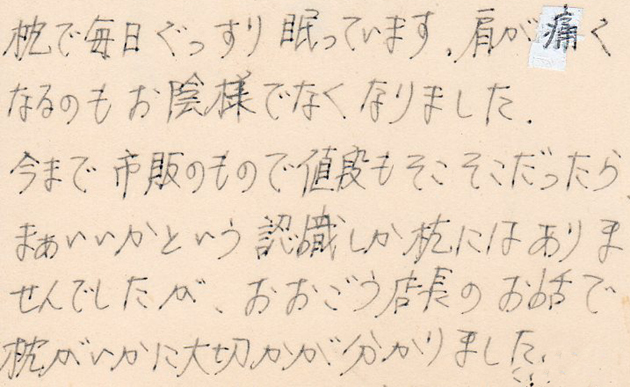 枕で毎日ぐっすり眠っています。肩が痛く
なるのもお陰様でなくなりました。
今まで市販のもので値段もそこそこだったら
まぁいいかという認識しか枕にはありま
せんでしたが、おおごう店長のお話で
枕がいかに大切かが分かりました。